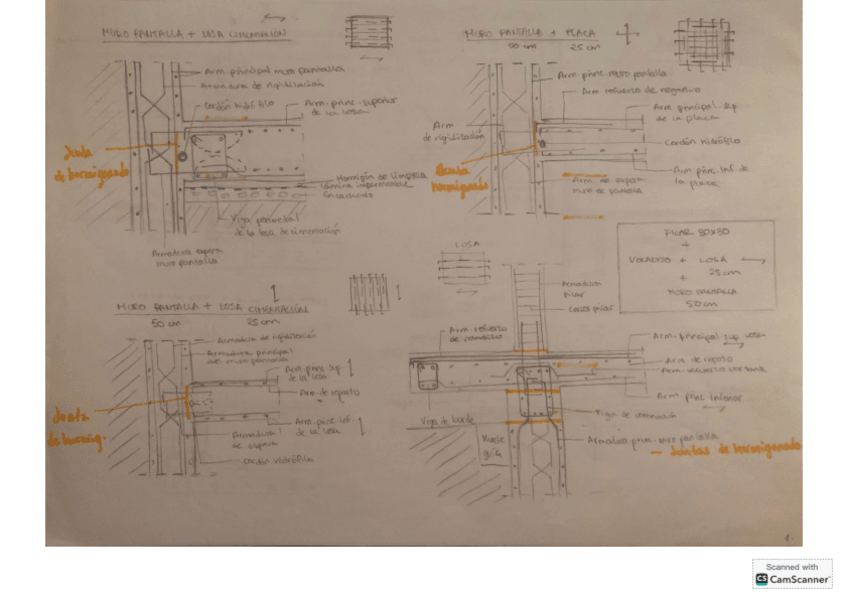 MURO PANTALLA + LOSA CIMENTACIÓN
Arm principal muro pantalla
Armadura de rigidización
Cordón hidrófilo
Arm. princ. superior
de la losa
Junta
de hormigonado
Hormigón de limpieza
Lámina impermeable
Encachado
Viga perimetral
de la losa de cimentación
Armadura espera
muro pantalla
MURO PANTALLA + PLACA
50 cm 25 cm
Arm. princ. muro pantalla
Arm refuerzo de negativo
Arm principal sup
de la placa
Arm
de rigidización
Cordón hidrófilo
Junta
hormigonado
Arm princ. inf. de
la placa
Arm de espera
muro de pantalla
PILAR 30x30
+
VOLADIZO + LOSA
+ 25 cm
MURO PANTALLA
50 cm
MURO PANTALLA + LOSA CIMENTACIÓN
50 cm 25 cm
Armadura de rigidización
Armadura principal
del muro pantalla
Arm princ. sup.
de la losa
Arm. de reparto
Junta
de hormig.
Arm. princ. inf.
de la losa
Armadura
de espera
Cordón hidrófilo
LOSA
Armadura
pilar
Cercos pilar
Arm. refuerzo
de voladizo
Arm. principal sup
Arm de reparto
Arm. refuerzo cortante
Arm princ inferior
Viga de coronación
Viga de borde
Murete
guía
Armadura princ. muro pantalla
— Juntas de hormigonado
1.
Scanned with
CS CamScanner